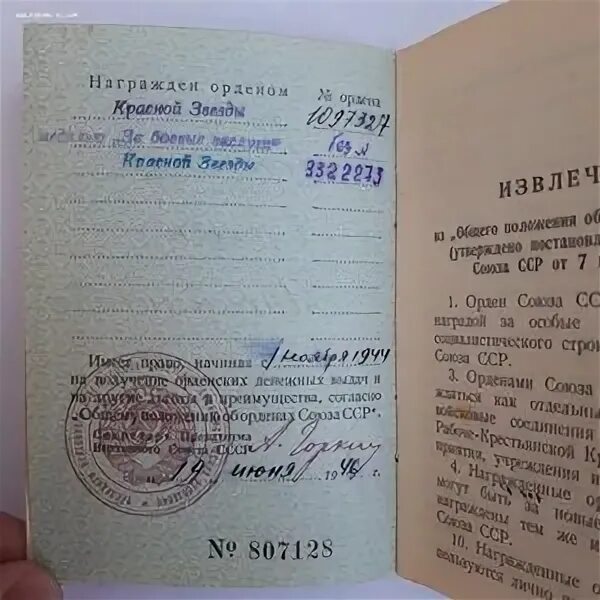 Награжден орденом
№ ордена
Красной Звезды
1097327
медалью „За боевые заслуги"
без №
Красной Звезды
3322273
Имеет право, начиная с 1 ноября 1944
на получение орденских денежных выдач и
на другие льготы и преимущества, согласно
«Общему положению об орденах Союза ССР».
Секретарь Президиума
Верховного Совета СССР
А. Горкин
19 июня 1946 г.
№ 807128
ИЗВЛЕЧ
из „Общего положения об
(утверждено постанов
Союза ССР от 7
1. Орден Союза СС
наградой за особые
социалистического строи
Союза ССР.
3. Орденами Союза
ждаться как отдельны
войсковые соединения
Рабоче-Крестьянской Кр
приятия, учреждения и
4. Награжденные ор
могут быть за новые
награждены тем же и
Союза ССР.
10. Награжденные о
пользуются лично